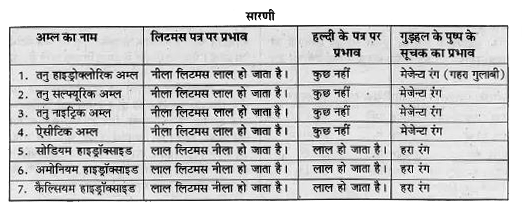 सारणी
अम्ल का नाम | लिटमस पत्र पर प्रभाव | हल्दी के पत्र पर प्रभाव | गुड़हल के पुष्प के सूचक का प्रभाव
1. तनु हाइड्रोक्लोरिक अम्ल | नीला लिटमस लाल हो जाता है। | कुछ नहीं | मेजेन्टा रंग (गहरा गुलाबी)
2. तनु सल्फ्यूरिक अम्ल | नीला लिटमस लाल हो जाता है। | कुछ नहीं | मेजेन्टा रंग
3. तनु नाइट्रिक अम्ल | नीला लिटमस लाल हो जाता है। | कुछ नहीं | मेजेन्टा रंग
4. ऐसीटिक अम्ल | नीला लिटमस लाल हो जाता है। | कुछ नहीं | मेजेन्टा रंग
5. सोडियम हाइड्रॉक्साइड | लाल लिटमस नीला हो जाता है। | लाल हो जाता है। | हरा रंग
6. अमोनियम हाइड्रॉक्साइड | लाल लिटमस नीला हो जाता है। | लाल हो जाता है। | हरा रंग
7. कैल्सियम हाइड्रॉक्साइड | लाल लिटमस नीला हो जाता है। | लाल हो जाता है। | हरा रंग